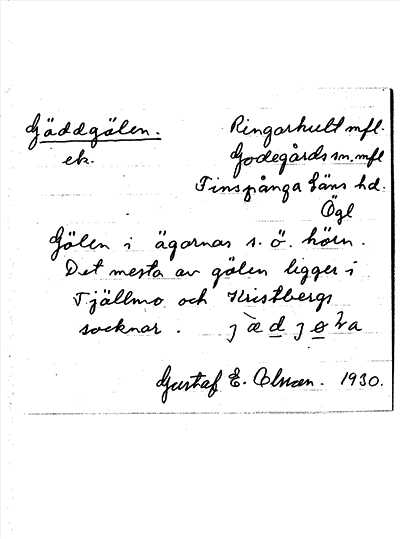 Gäddgölen. Ringarhult mfl.
ek. Godegårds sn. mfl
Finspånga läns hd.
Ögl
Gölen i ägornas s. ö. hörn.
Det mesta av gölen ligger i
Tjällmo och Kristbergs
socknar.
Gustaf E. Olsson. 1930.